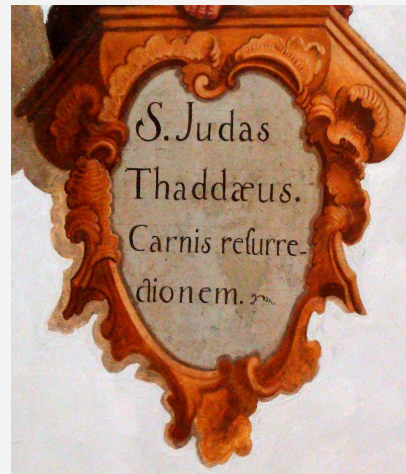 S. Judas
Thaddæus.
Carnis reſurre-
ctionem.